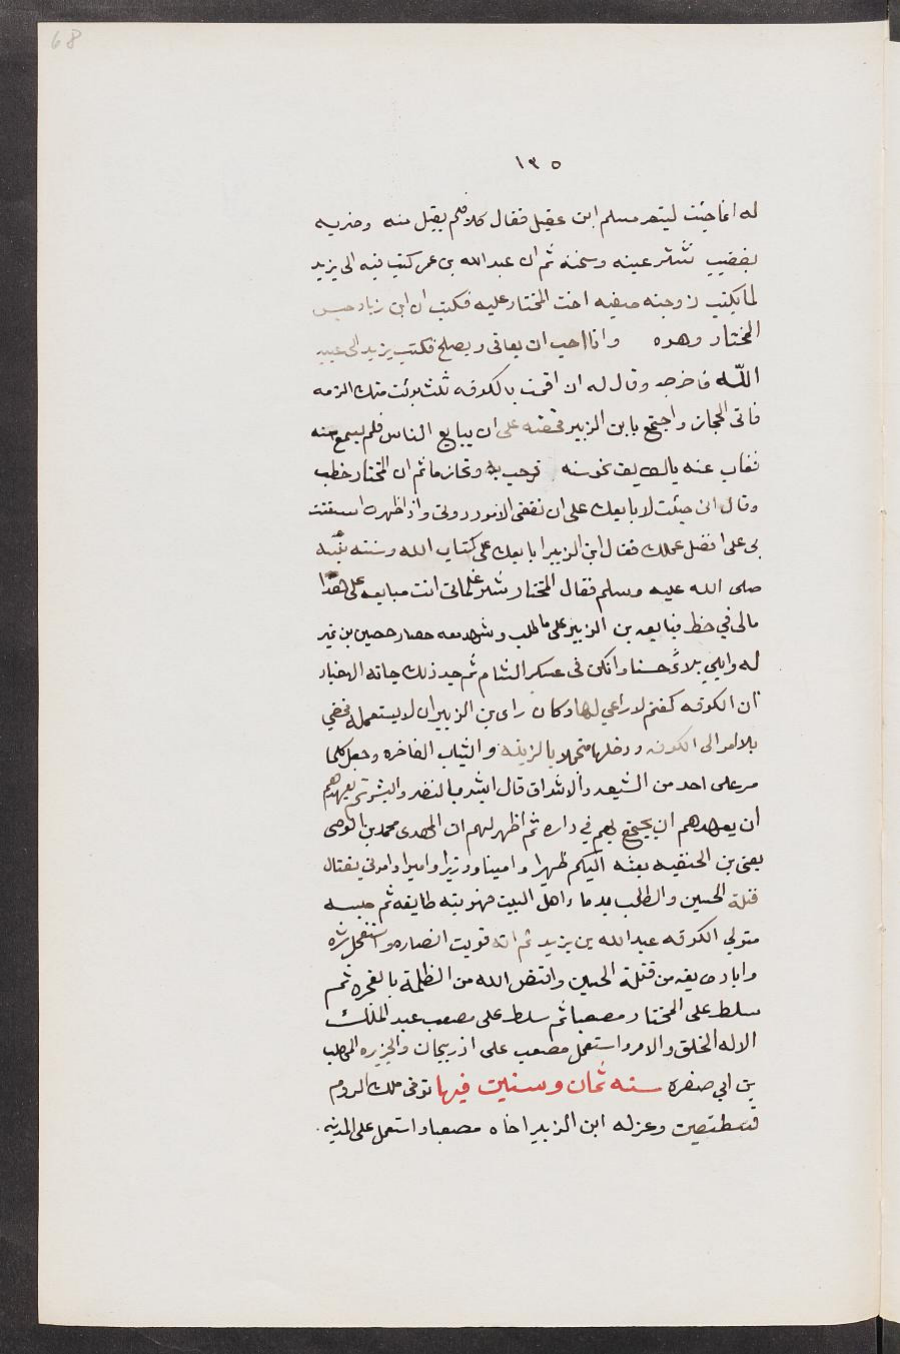 68
١٣٥
له انما جئت ليتصر مسلم ابن عقيل فقال كلا فلم يقبل منه وضربه
بقضيب شتر عينه وسجنه ثم ان عبد الله بن عمر كتب فيه الى يزيد
لما بكت زوجته صفيه اخت المختار عليه فكتب ان ابن زياد حبس
المختار وهو وانا احب ان يعافى ويصلح فكتب يزيد الى عبيد
الله فاخرجه وقال له ان اقمت بالكوفه ثلث برئت منك الذمه
فاتى الحجاز واجتمع بابن الزبير فحضه على ان يبايع الناس فلم يسمع منه
فغاب عنه بالطايف نحو سنه فرحب به وتحادثا ثم ان المختار خطب
وقال انى جئت لابايعك على ان لا تقضى الامور دونى واذا ظهرت استعنت
بى على افضل عملك فقال ابن الزبير ابايعك على كتاب الله وسنته نبيه
صلى الله عليه وسلم فقال المختار شر غلمانى انت مبايعه على هذا
مالى فى حظ فبايعه بن الزبير على ما طلب وشهد معه حصار حصين بن نمير
له وابلى بلاءً حسنا وانكى فى عسكر الشام ثم بعد ذلك جاته الاخبار
ان الكوفه كغنم لا راعي لها وكان راى بن الزبير ان لا يستعمله فمضي
بلا امر الى الكوفه ودخلها متجملا بالزينه والثياب الفاخره وجعل كلما
مر على احد من الشيعه والاشراف قال ابشر بالنصر واليسر ثم يعدهم
ان يعهدهم ان يجتمع بهم فى داره ثم اظهر لهم ان المهدى محمد بن الوصى
يعنى بن الحنفيه بعثه اليكم ظهيرا وامينا ووزيرا واميرا وامرنى بقتال
قتلة الحسين والطلب بدما اهل البيت فهويته طايفه ثم حبسه
متولي الكوفه عبد الله بن يزيد ثم انه قويت انصاره واستفحل شره
واباد طايفه من قتلة الحسين واقتص الله من الظلمة بالفجره ثم
سلط على المختار مصعبا ثم سلط على مصعب عبد الملك
الا له الخلق والامر واستعمل مصعب على اذربيجان والجزيره المهلب
بن ابي صفره سنه ثمان وستين فيها توفى ملك الروم
قسطنطين وعزله ابن الزبير اخاه مصعبا واستعمل على المدينه.